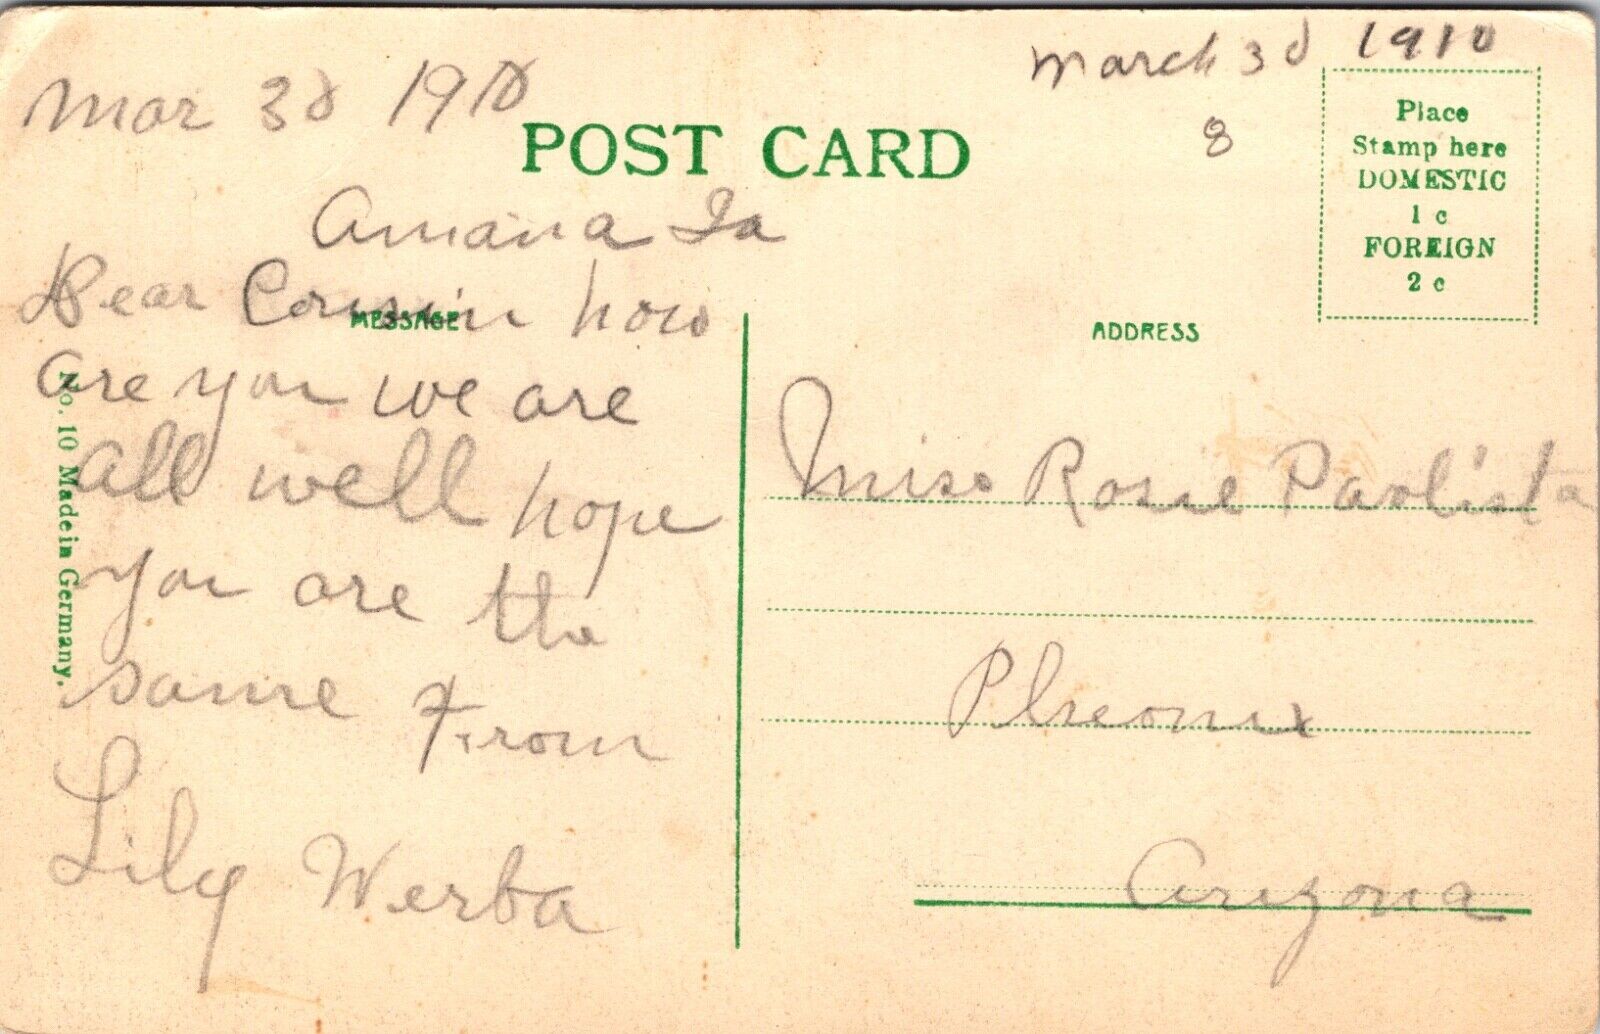 March 3d 1910
Mar 3d 1910
8
POST CARD
Place
Stamp here
DOMESTIC
1 c
FOREIGN
2 c
Amana Ia
Dear Cousin how
MESSAGE
are you we are
all well hope
you are the
same From
Lily Werba
No. 10 Made in Germany.
ADDRESS
Miss Rosie Pavlista
Pheonix
Arizona